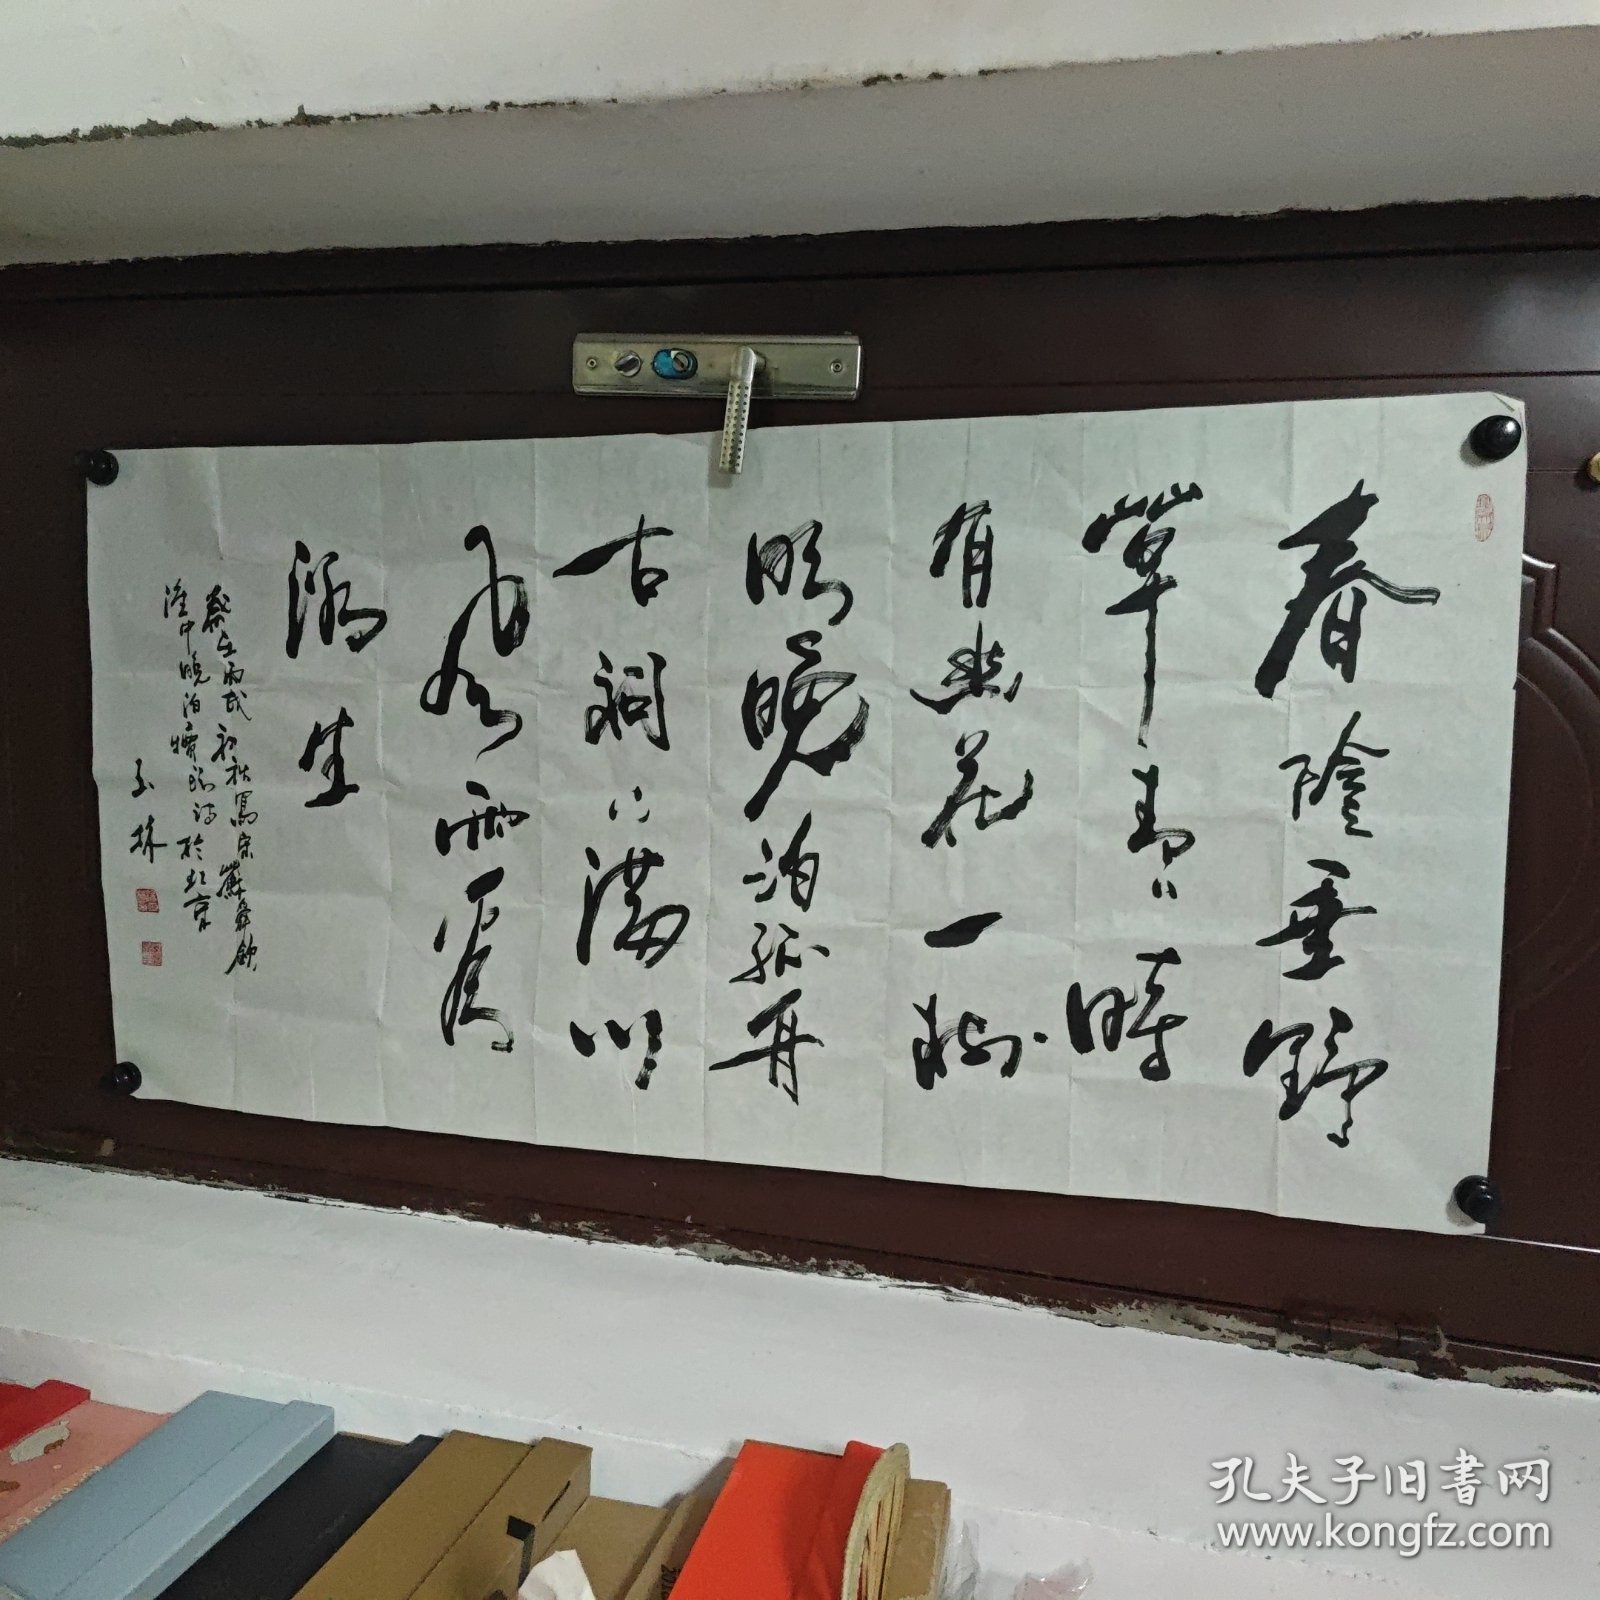 春陰垂野
草青〻時
有幽花一樹
明晚泊孤舟
古祠下滿川
風雨看
潮生
歲在丙戌初秋寫宋蘇舜欽
淮中晚泊犢頭詩於北京
玉林
孔夫子旧書网
www.kongfz.com